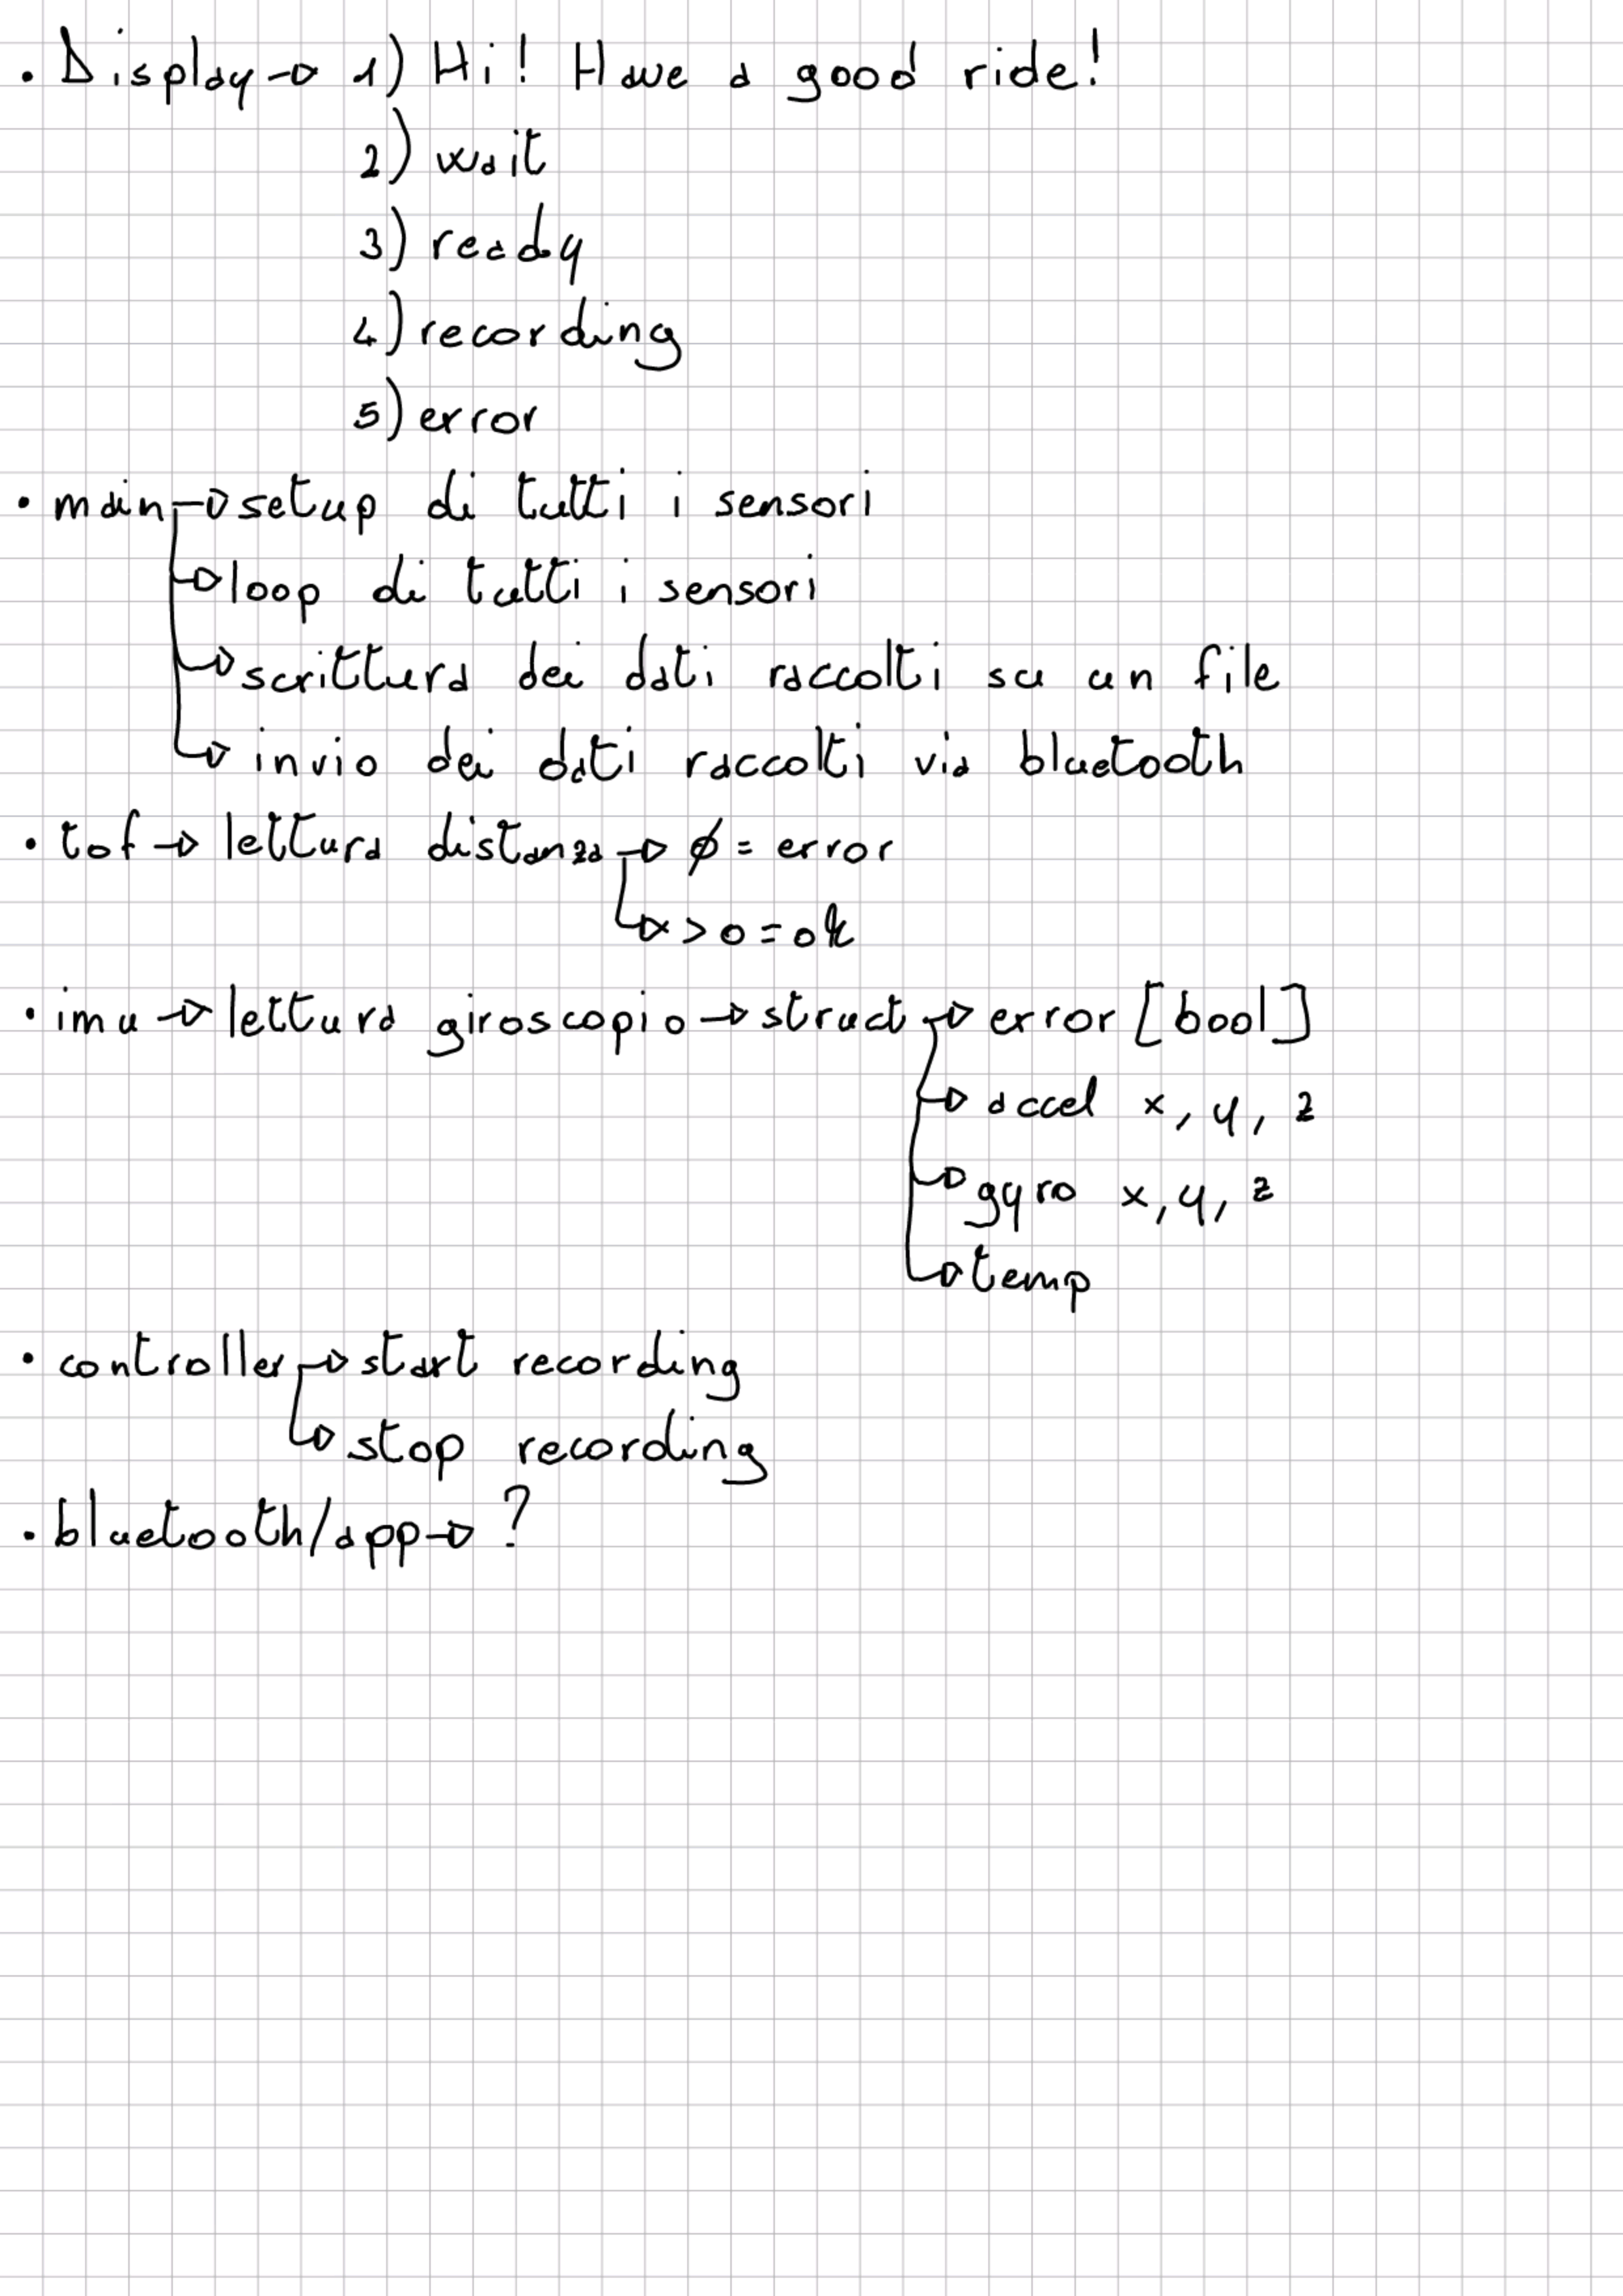 • Display → 1) Hi! Have a good ride!
2) wait
3) ready
4) recording
5) error
• main → setup di tutti i sensori
→ loop di tutti i sensori
→ scrittura dei dati raccolti su un file
→ invio dei dati raccolti via bluetooth
• tof → lettura distanza → ø = error
→ > 0 = ok
• imu → lettura giroscopio → struct → error [bool]
→ accel x, y, z
→ gyro x, y, z
→ temp
• controller → start recording
→ stop recording
• bluetooth/app → ?